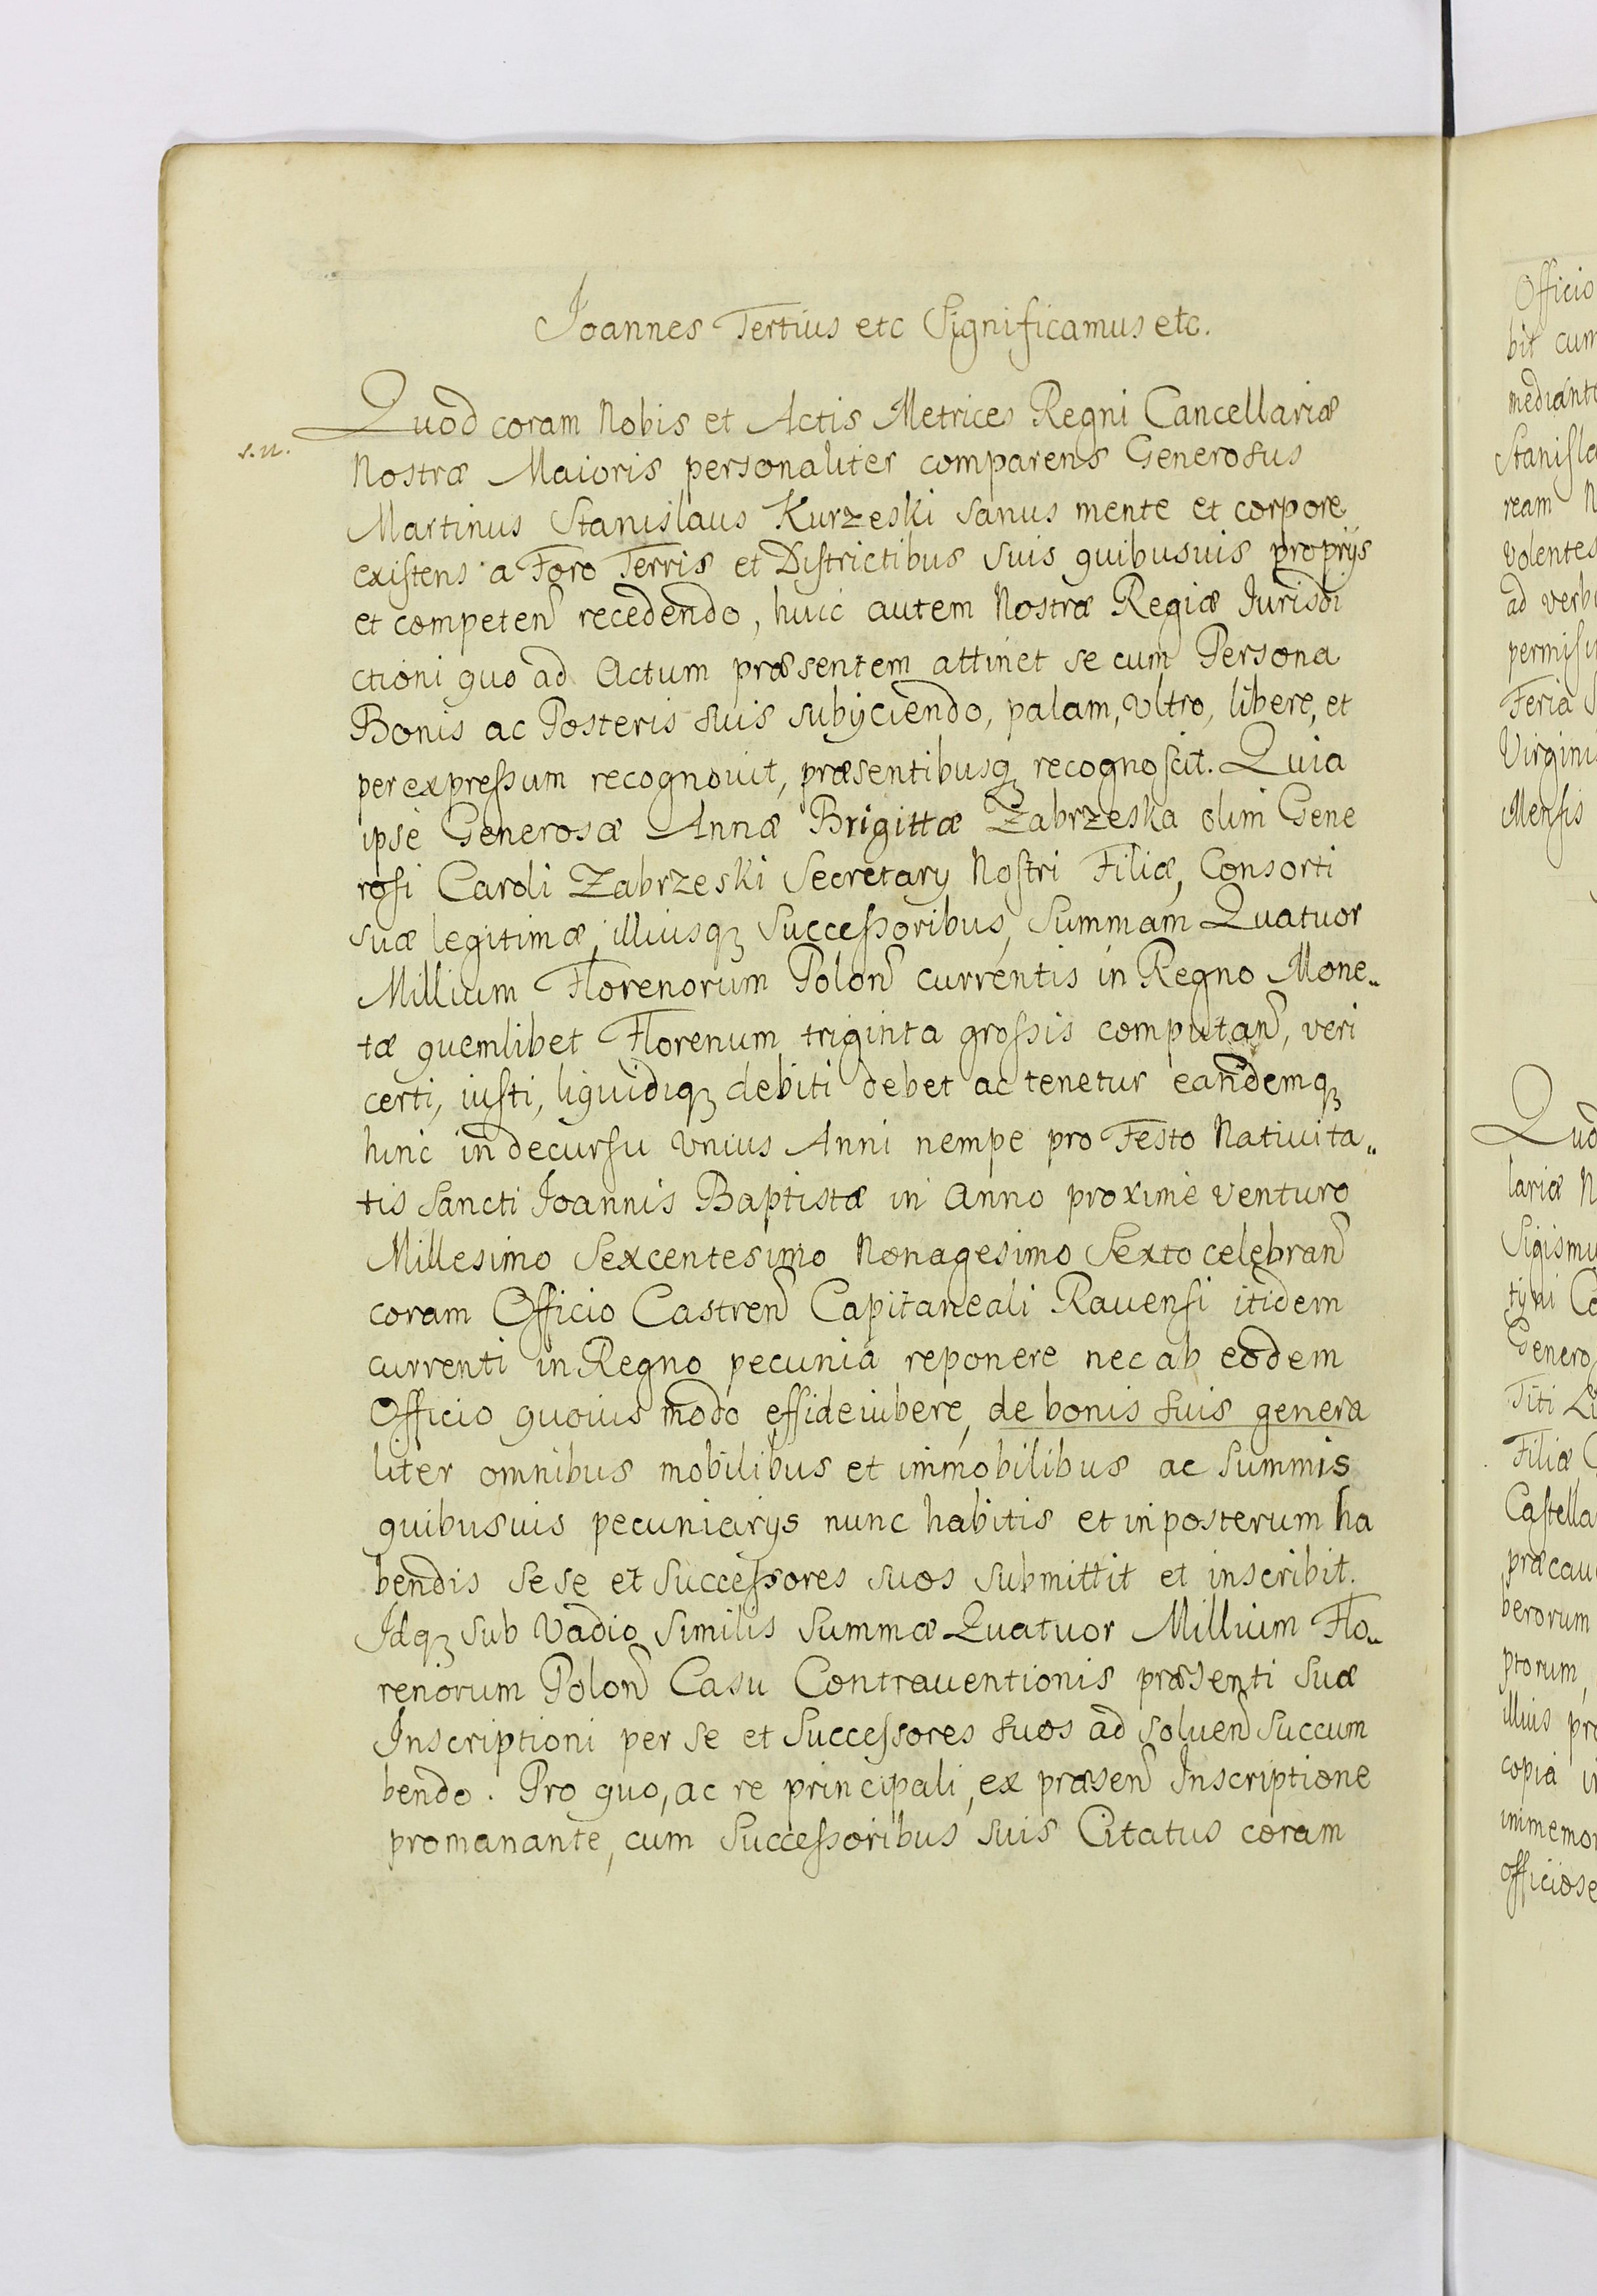 Joannes Tertius etc Significamus etc.
s.n.
Quod coram Nobis et Actis Metrices Regni Cancellariæ
Nostræ Maioris personaliter comparens Generosus
Martinus Stanislaus Kurzeski sanus mente et corpore
existens a Foro Terris et Districtibus suis quibusuis proprijs
et competen recedendo, huic autem Nostræ Regiæ Jurisdi
ctioni quo ad Actum præsentem attinet se cum Persona
Bonis ac Posteris suis subijciendo, palam, Vltro, libere, et
per expressum recognouit, præsentibusq recognoscit. Quia
ipse Generosæ Annæ Brigittæ Zabrzeska olim Gene
rosi Caroli Zabrzeski Secretary Nostri Filiæ, Consorti
suæ legitimæ, illiusq Successoribus, Summam Quatuor
Millium Florenorum Polon currentis in Regno Mone„
tæ quemlibet Florenum triginta grossis computan, veri
certi, iusti, liquidiq debiti debet ac tenetur eandemq
hinc in decursu Vnius Anni nempe pro Festo Natiuita„
tis Sancti Joannis Baptistæ in Anno proxime venturo
Millesimo Sexcentesimo Nonagesimo Sexto celebran
coram Officio Castren Capitaneali Rauensi itidem
currenti in Regno pecunia reponere nec ab eodem
Officio quouis modo effideiubere, de bonis suis genera
liter omnibus mobilibus et immobilibus ac Summis
quibusuis pecuniarijs nunc habitis et in posterum ha
bendis se se et Successores suos submittit et inscribit.
Idq sub Vadio Similis Summæ Quatuor Millium Flo„
renorum Polon Casu Contrauentionis præsenti Suæ
Inscriptioni per se et Successores suos ad soluen succum
bendo. Pro quo, ac re principali, ex præsen Inscriptione
promanante, cum Successoribus suis Citatus coram
Officio
bit cum
ream
Volentes
Feria
Mensis
lariæ
Filiæ
berorum
ptorum,
illius
copia